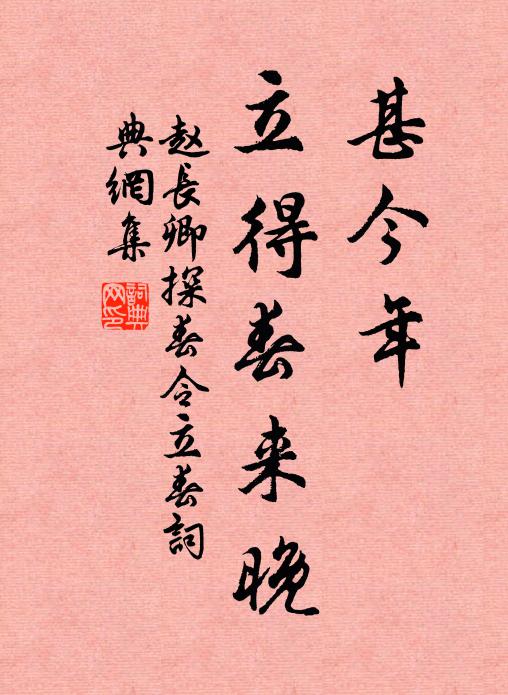 甚今年
立得春来晚
赵長卿探春令立春詞
典網集
詞典网印